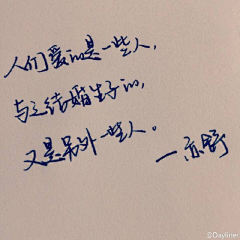 人们爱的是一些人,
与之结婚生子的,
又是另外一些人。
一亦舒
@Dayliner